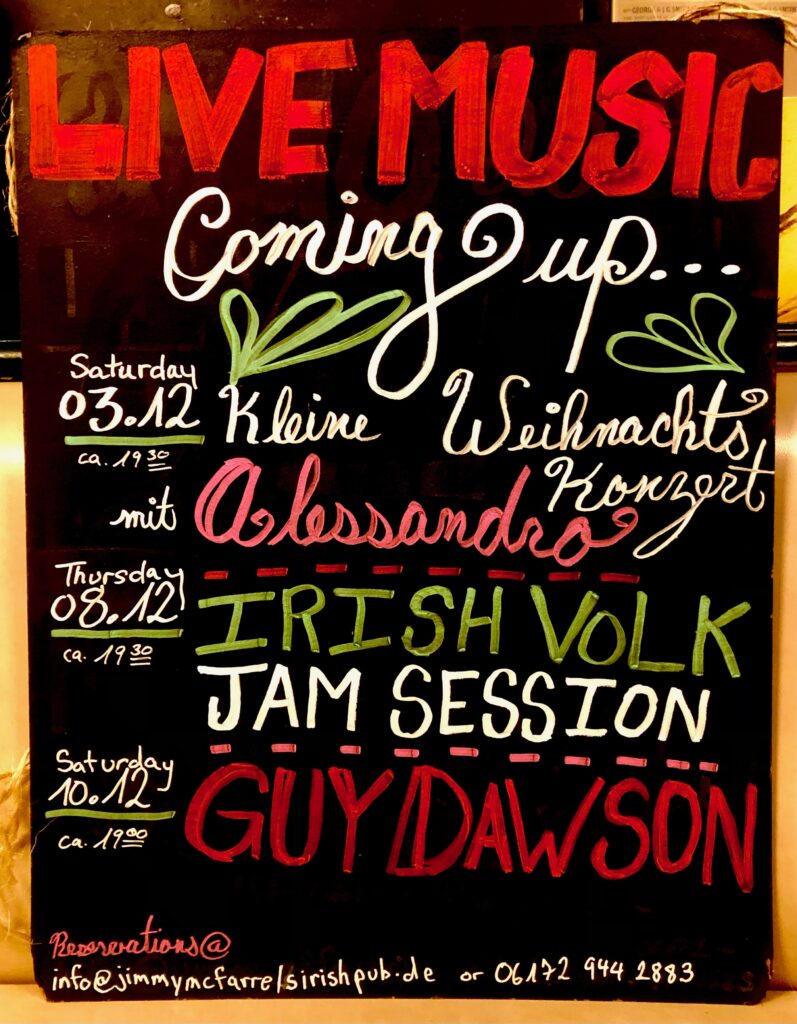 LIVE MUSIC
Coming up...
Saturday
03.12
ca. 19 30
Kleine Weihnachts
Konzert
mit Alessandro
Thursday
08.12
ca. 19 30
IRISH VOLK
JAM SESSION
Saturday
10.12
ca. 19 00
GUY DAWSON
Reservations@
info@jimmymcfarrelsirishpub.de or 06172 944 2883